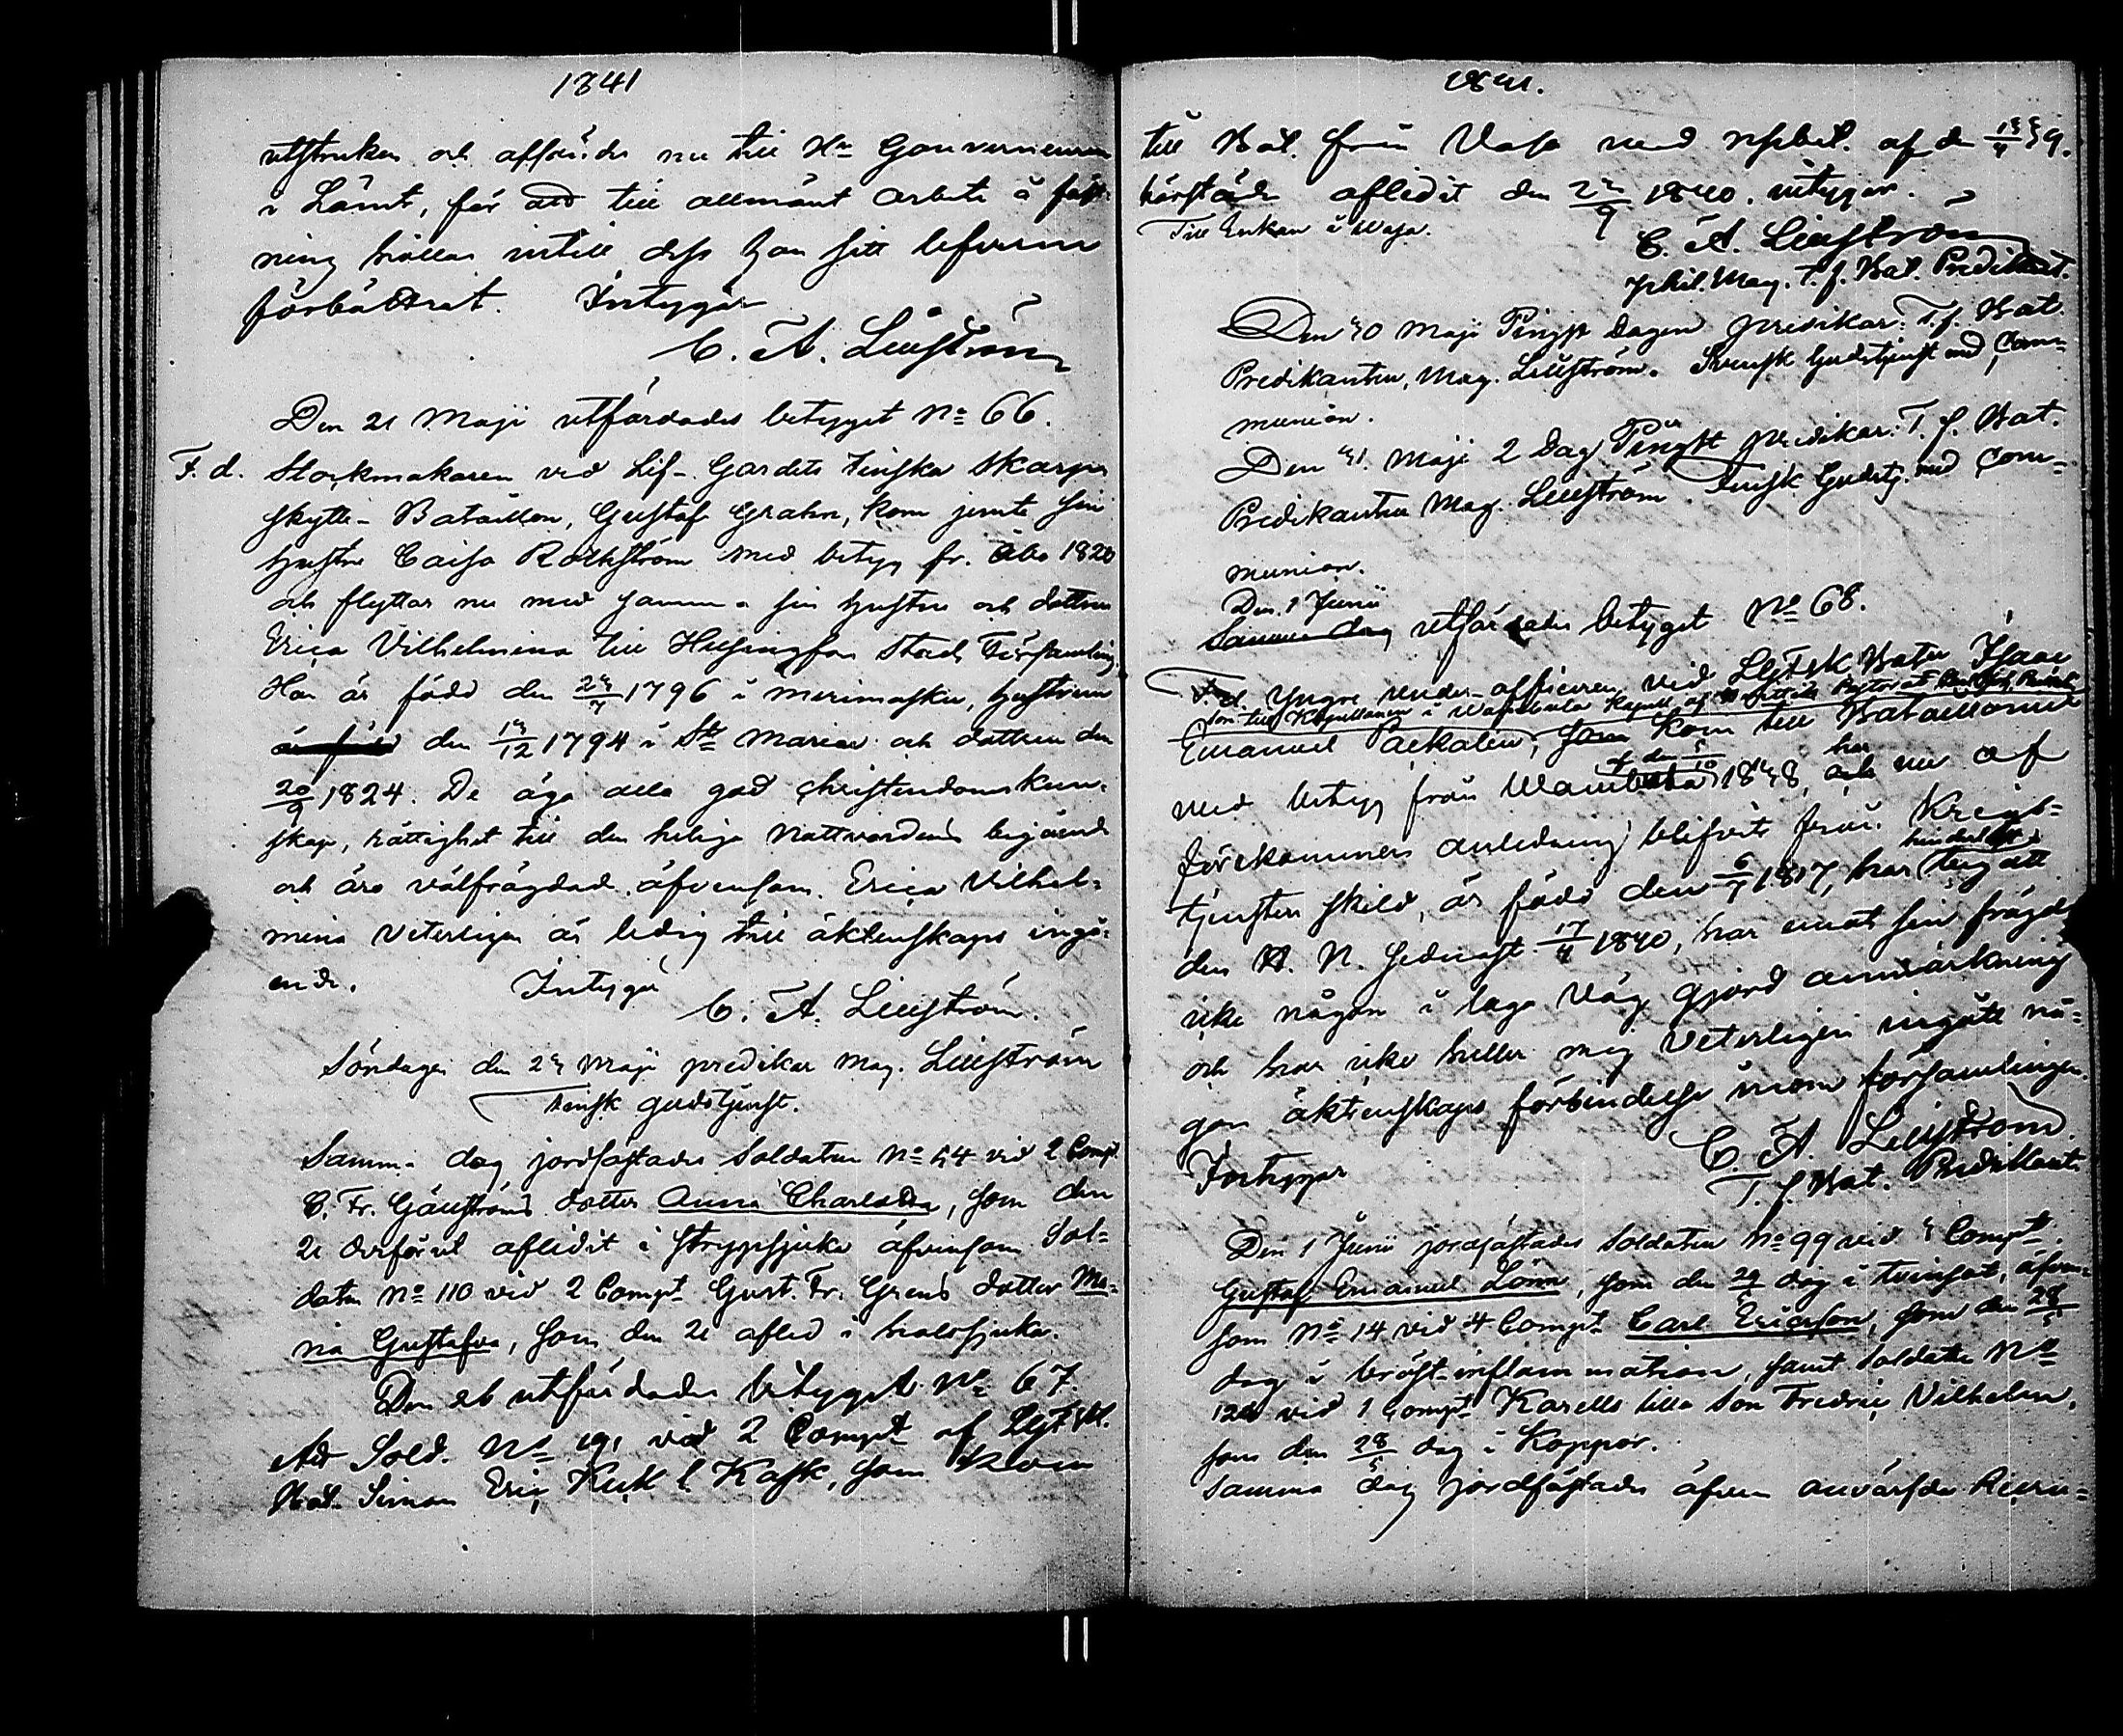 1841
utstruken och afsändes nu till Hr Gouverneuren
i Länet, för att till allmänt arbete å fäst-
ning hållas intill dess han sitt lefverne
förbättrat. Intygar
C. A. Lillström
Den 21 Maji utfärdades betyget No 66.
F. d. Stockmakaren vid Lif-Gardets Finska Skarp-
skytte-Bataillon, Gustaf Grahn, kom jemte sin
hustru Caisa Rothström med betyg fr. Åbo 1820
och flyttar nu med samma sin hustru och dottren
Erica Vilhelmina till Helsingfors Stads Församling.
Han är född den 23/7 1796 i Merimasku, hustrun
är född den 13/12 1794 i St Mariae och dottren den
20/9 1824. De äga alla god christendomskun-
skap, rättighet till den heliga Nattvardens begående
och äro välfrägdade, äfvensom Erica Vilhel-
mina veterligen är ledig till äktenskaps ingå-
ende. Intygar
C. A. Lillström.
Söndagen den 23 Maji predikar Mag. Lillström
Finsk gudstjenst.
Samma dag jordfästades Soldaten No 54 vid 2 Compt
C. Fr. Gällströms dotter Anna Charlotta, som den
21 derförut aflidit i strypsjuka äfvensom Sol-
daten No 110 vid 2 Compt Gust. Fr. Grens dotter Ma-
ria Gustafva, som den 21 afled i halssjuka.
Den 26 utfärdades betyget No 67.
Att Sold. No 191 vid 2 Compt af LgFSk.
Bat. Simon Eric Kuk l. Kask, som kom
1841.
till Bat. från Vasa med psbet. af den 13/4 39.
härstädes aflidit den 23/9 1840. intygar.
Till Enkan i Wasa.
C. A. Lillström
phil. Mag. T. f. Bat. Predikant.
Den 30 Maji Pingst Dagen predikar T. f. Bat.
Predikanten, Mag. Lillström. Svensk Gudstjenst med Com-
munion.
Den 31. Maji 2 Dag Pingst predikar T. f. Bat.
Predikanten Mag. Lillström. Finsk Gudstj. med Com-
munion.
Den 1 Junii
Samma dag utfärdades betyget No 68.
F. d. Yngre under-officeren vid LgFSk Baten Isaac
son till Kapellanen i
Emanuel Aekalen, som kom till Bataillonen
af den
med betyg från 1838, och har nu af
förekommen anledning blifvit från Krigs-
tjensten skild, är född den 6/7 1817, har
den H. N. sednast 17/4 1840, har emot sin frägd
icke någon i laga väg gjord anmärkning
och har icke heller mig veterligen ingått nå-
gon äktenskaps förbindelse inom församlingen.
Intygar
C. A. Lillström
T. f. Bat. Predikant.
Den 1 Junii jordfästades Soldaten No 99 vid 3 Compt
Gustaf Emanuel Lönn, som den 29/5 dog i tvinsot, äfven-
som No 14 vid 4 Compt Carl Ericsson, som den 28/5
dog i bröst-inflammation, samt Soldaten No
124 vid 1 Compt Karells lilla Son Fredric Vilhelm,
som den 28/5 dog i Koppor.
Samma dag jordfästades äfven anvärfde Recru-